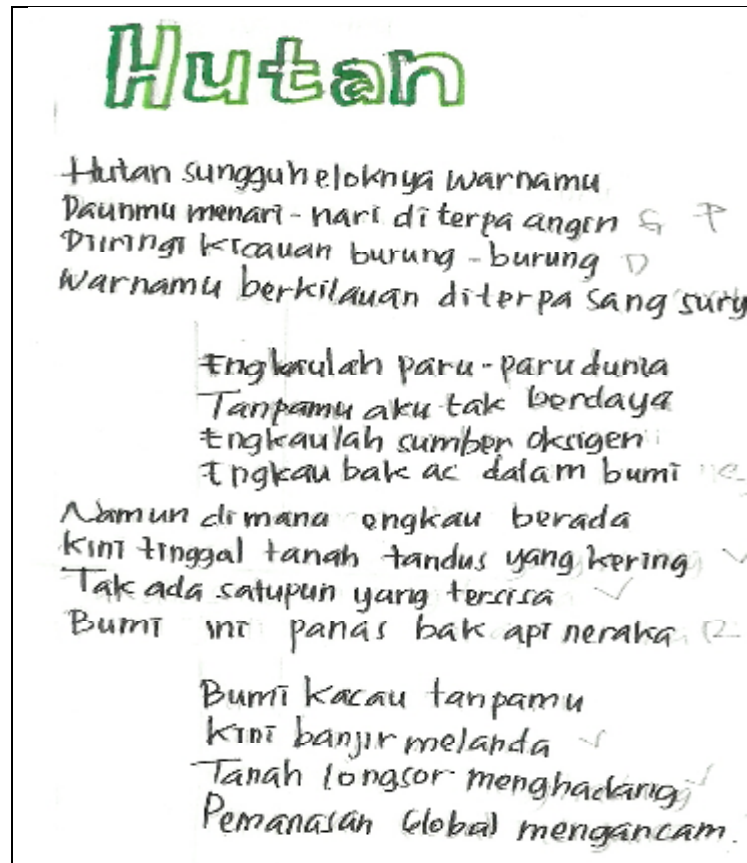 Hutan
Hutan sungguh eloknya warnamu
Daunmu menari-nari diterpa angin
Diiringi kicauan burung-burung
Warnamu berkilauan diterpa sang sury
Engkaulah paru-paru dunia
Tanpamu aku tak berdaya
Engkaulah sumber oksigen
Engkau bak ac dalam bumi
Namun dimana engkau berada
Kini tinggal tanah tandus yang kering
Tak ada satupun yang tersisa
Bumi ini panas bak api neraka
Bumi kacau tanpamu
Kini banjir melanda
Tanah longsor menghadang
Pemanasan Global mengancam.